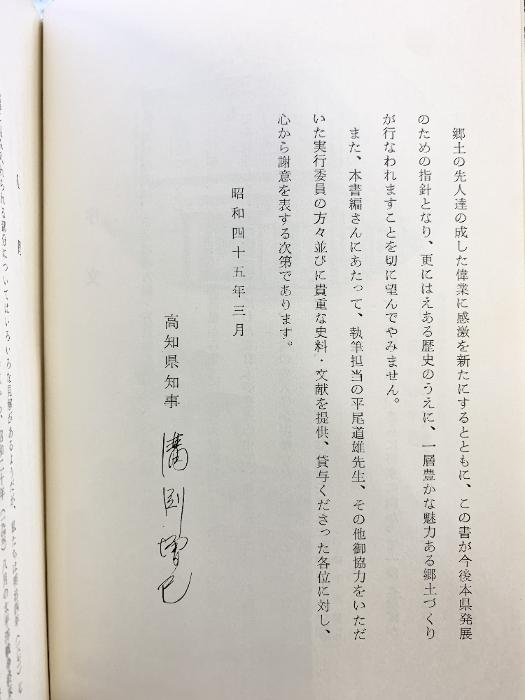 郷土の先人達の成した偉業に感激を新たにするとともに、この書が今後本県発展
のための指針となり、更にはえある歴史のうえに、一層豊かな魅力ある郷土づくり
が行なわれますことを切に望んでやみません。
また、本書編さんにあたって、執筆担当の平尾道雄先生、その他御協力をいただ
いた実行委員の方々並びに貴重な史料・文献を提供、貸与くださった各位に対し、
心から謝意を表する次第であります。
昭和四十五年三月
高知県知事
溝渕増巳